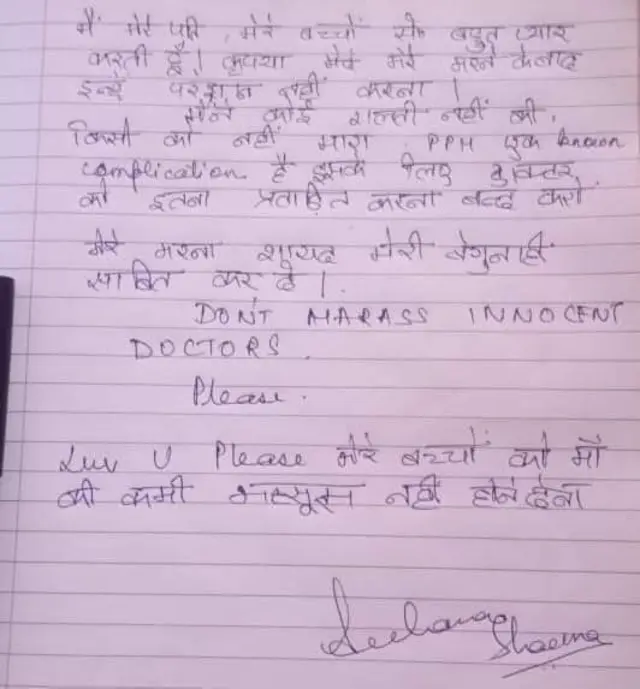 मैं मेरे पति, मेरे बच्चों से बहुत प्यार
करती हूँ। कृपया मेरे मरने के बाद
इन्हें परेशान नहीं करना।
मैंने कोई गलती नहीं की,
किसी को नहीं मारा. PPH एक known
complication है इसके लिए डॉक्टर
को इतना प्रताड़ित करना बन्द करो.
मेरे मरना शायद मेरी बेगुनाही
साबित कर दे।
DON'T HARASS INNOCENT
DOCTORS.
Please.
Luv U Please मेरे बच्चों को माँ
की कमी महसूस नहीं होने देना
Sharma